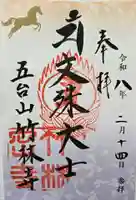 奉拝
令和八年二月十四日参拝
文殊大士
五台山竹林寺